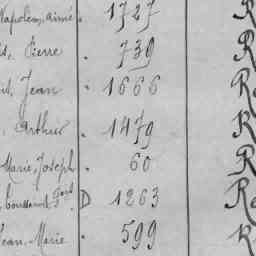 Napoléon, Aimé . 1727 R
Pierre . 739 R
Jean . 1666 R
, Arthur . 1479 R
Marie, Joseph . 60 R
D 1263 R
Jean, Marie . 599 R